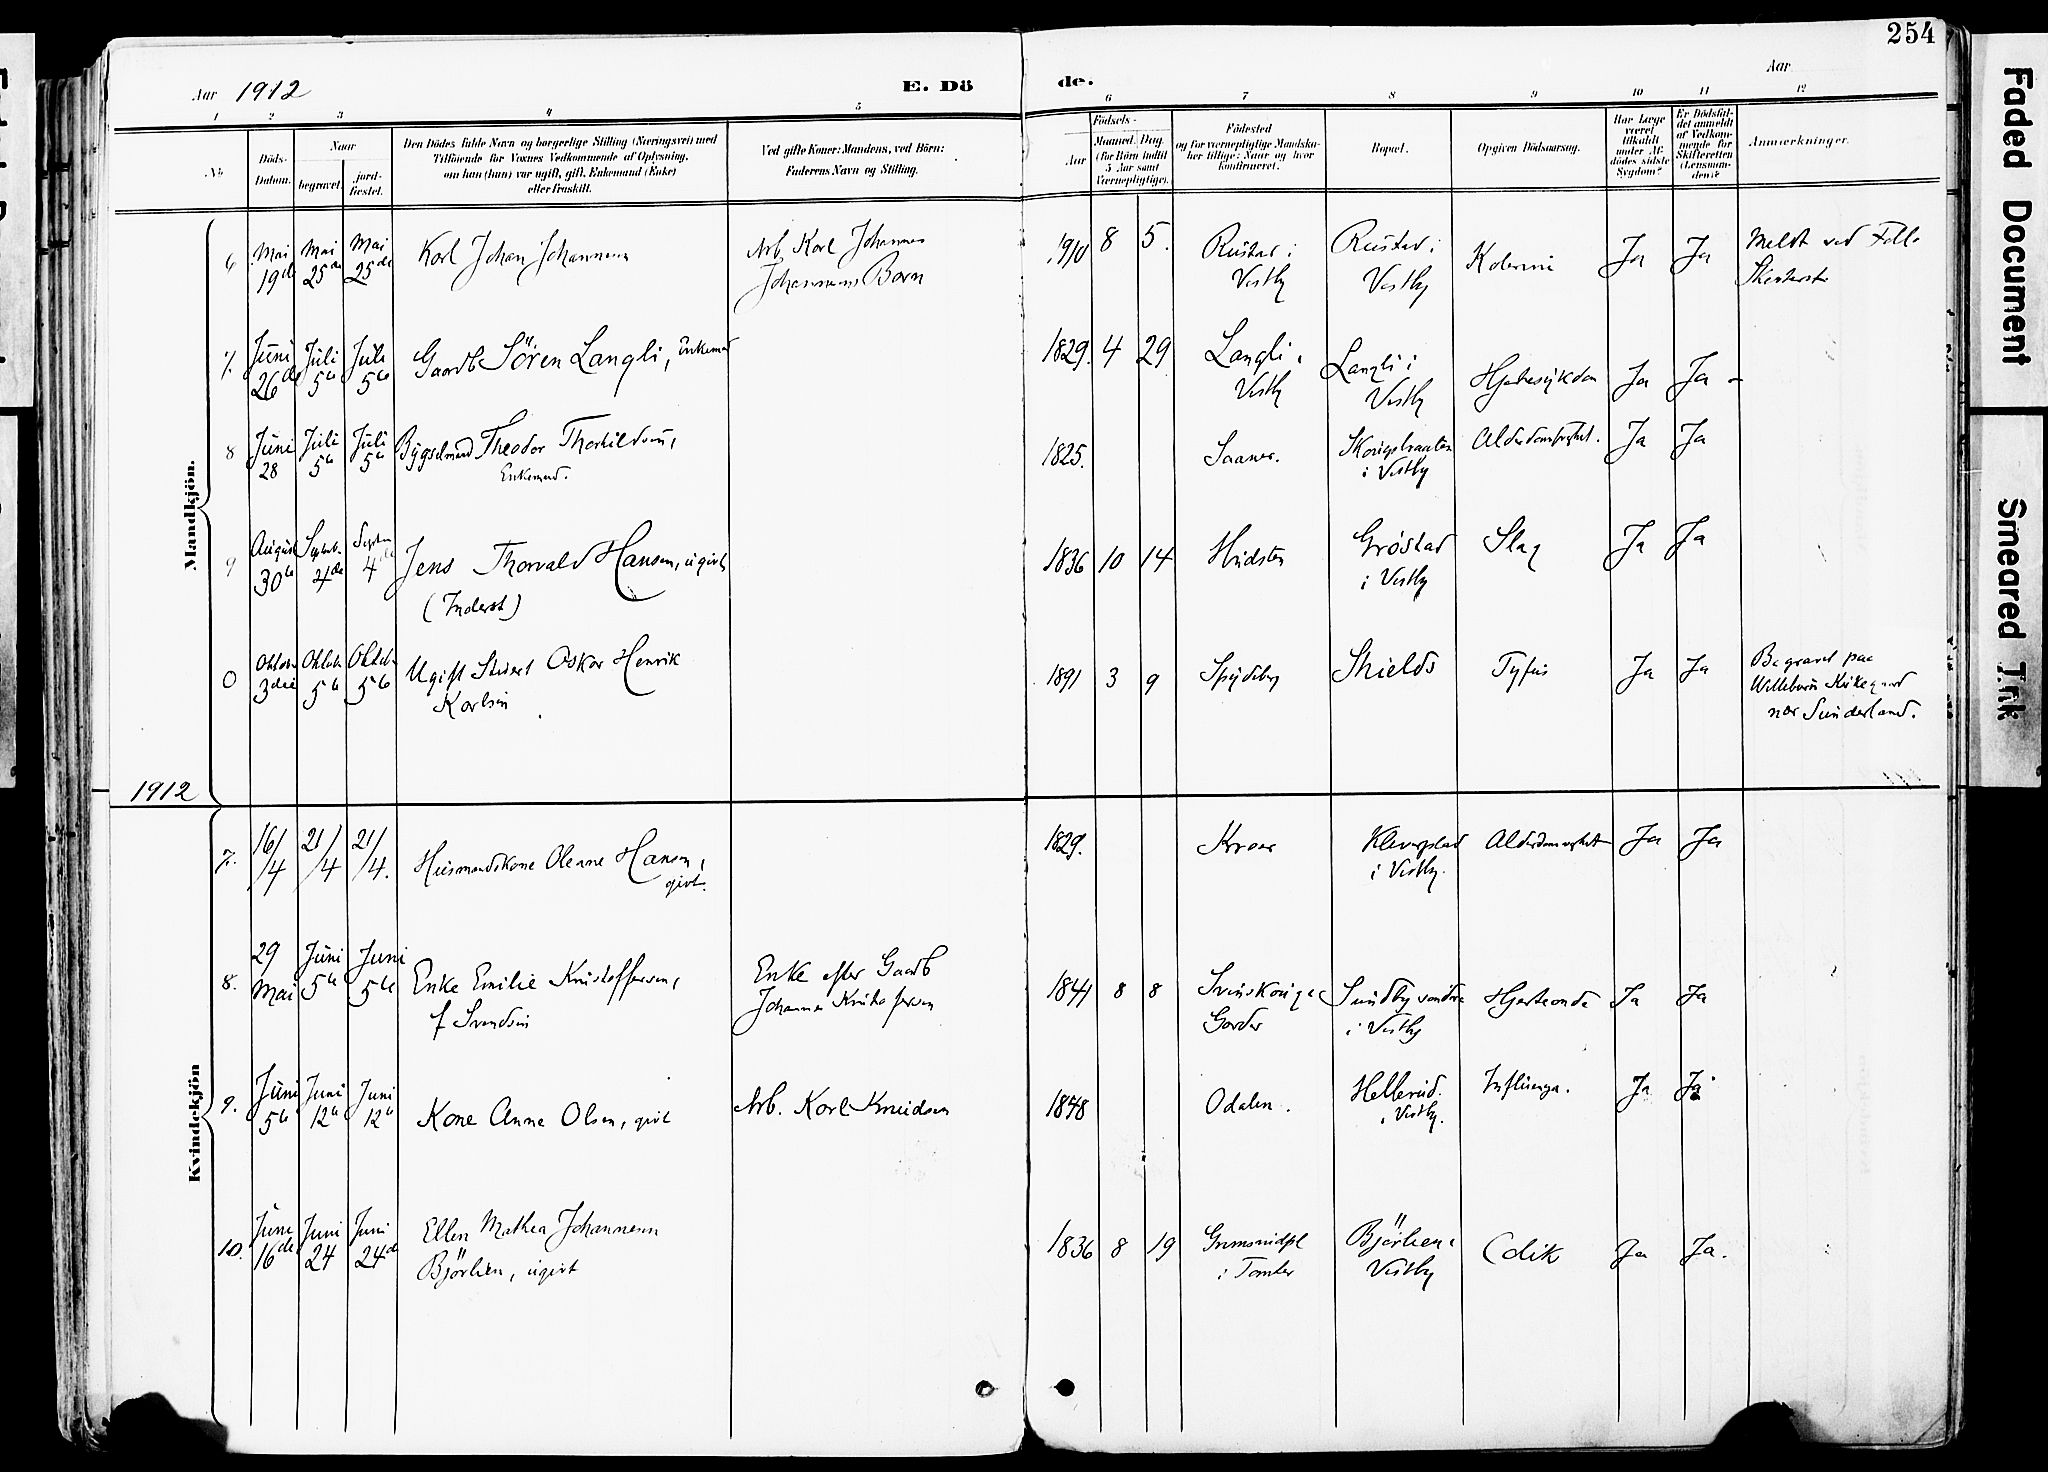 254
Aar 1912
E. Dö
de.
Aar
1 2 3 4 5 6 7 8 9 10 11 12
No
Döds-
Datum.
Naar
begravet.
jord-
fæstet.
Den Dödes fulde Navn og borgerlige Stilling (Næringsvei) med
Tilföiende for Voxnes Vedkommende af Oplysning,
om han (hun) var ugift, gift, Enkemand (Enke)
eller fraskilt.
Ved gifte Koner: Mandens, ved Börn:
Faderens Navn og Stilling.
Födsels-
Aar
Maaned. Dag.
(for Börn indtil
5 Aar samt
Værnepligtige).
Födested
og for værnepligtige Mandska-
ber tillige: Naar og hvor
konfirmeret.
Bopæl.
Opgiven Dödsaarsag.
Har Læge
været
tilkaldt
under Af-
dödes sidste
Sygdom?
Er Dödsfal-
det anmeldt
af Vedkom-
mende for
Skifteretten
(Lensman-
den)?
Anmærkninger.
Mandkjön.
6 Mai 19de Mai 25de Mai 25de Karl Johan Johannesen
Arb. Karl Johannes
Johannesens Barn
1910 8 5. Rustad i
Vestby
Rustad i
Vestby
Ja Ja
Meldt ved
7. Juni 26de Juli 5te Juli 5te Gaardb Sören Langli, Enkemand
1829. 4 29 Langli i
Vestby
Langli i
Vestby
Hjertesykdom Ja Ja
8 Juni 28 Juli 5te Juli 5te Bygselmand Theodor Thorkildsen,
Enkemand.
1825. Saaner.
i Vestby
Ja Ja
9 August 30te Septbr. 4de Septbr 4de Jens Thorvald Hansen, ugivt
(Inderst)
1836 10 14 Hvidsten
Grøstad
i Vestby
Slag Ja Ja
0 Oktober 3die Oktob 5te Oktob 5te Ugift Oskar Henrik
Karlsen
1891 3 9 Spydeberg Shields Tyfus Ja Ja
Begravet paa
Kirkegaard
nær Sunderland.
1912
Kvindekjön
7. 16/4 21/4 21/4. Husmandskone Oleane Hansen,
givt.
1829. Kroer
i Vestby.
Ja Ja
8. 29 Mai Juni 5te Juni 5te Enke Emilie Kristoffersen,
f Svendsen
Enke efter Gaardb
Johannes Kristoffersen
1841 8 8
Garder
Sundby søndre
i Vestby
Hjerteonde Ja Ja
9. Juni 5te Juni 12te Juni 12te Kone Anne Olsen, givt
Arb. Karl Knudsen
1848 Odalen.
Hellerud.
i Vestby.
Influenza. Ja Ja
10. Juni 16de Juni 24 Juni 24de Ellen Mathea Johannesen
Björlien, ugivt
1836 8 19
i Tomter
Björlien i
Vestby
Colik Ja Ja.
Faded Document
Smeared Ink